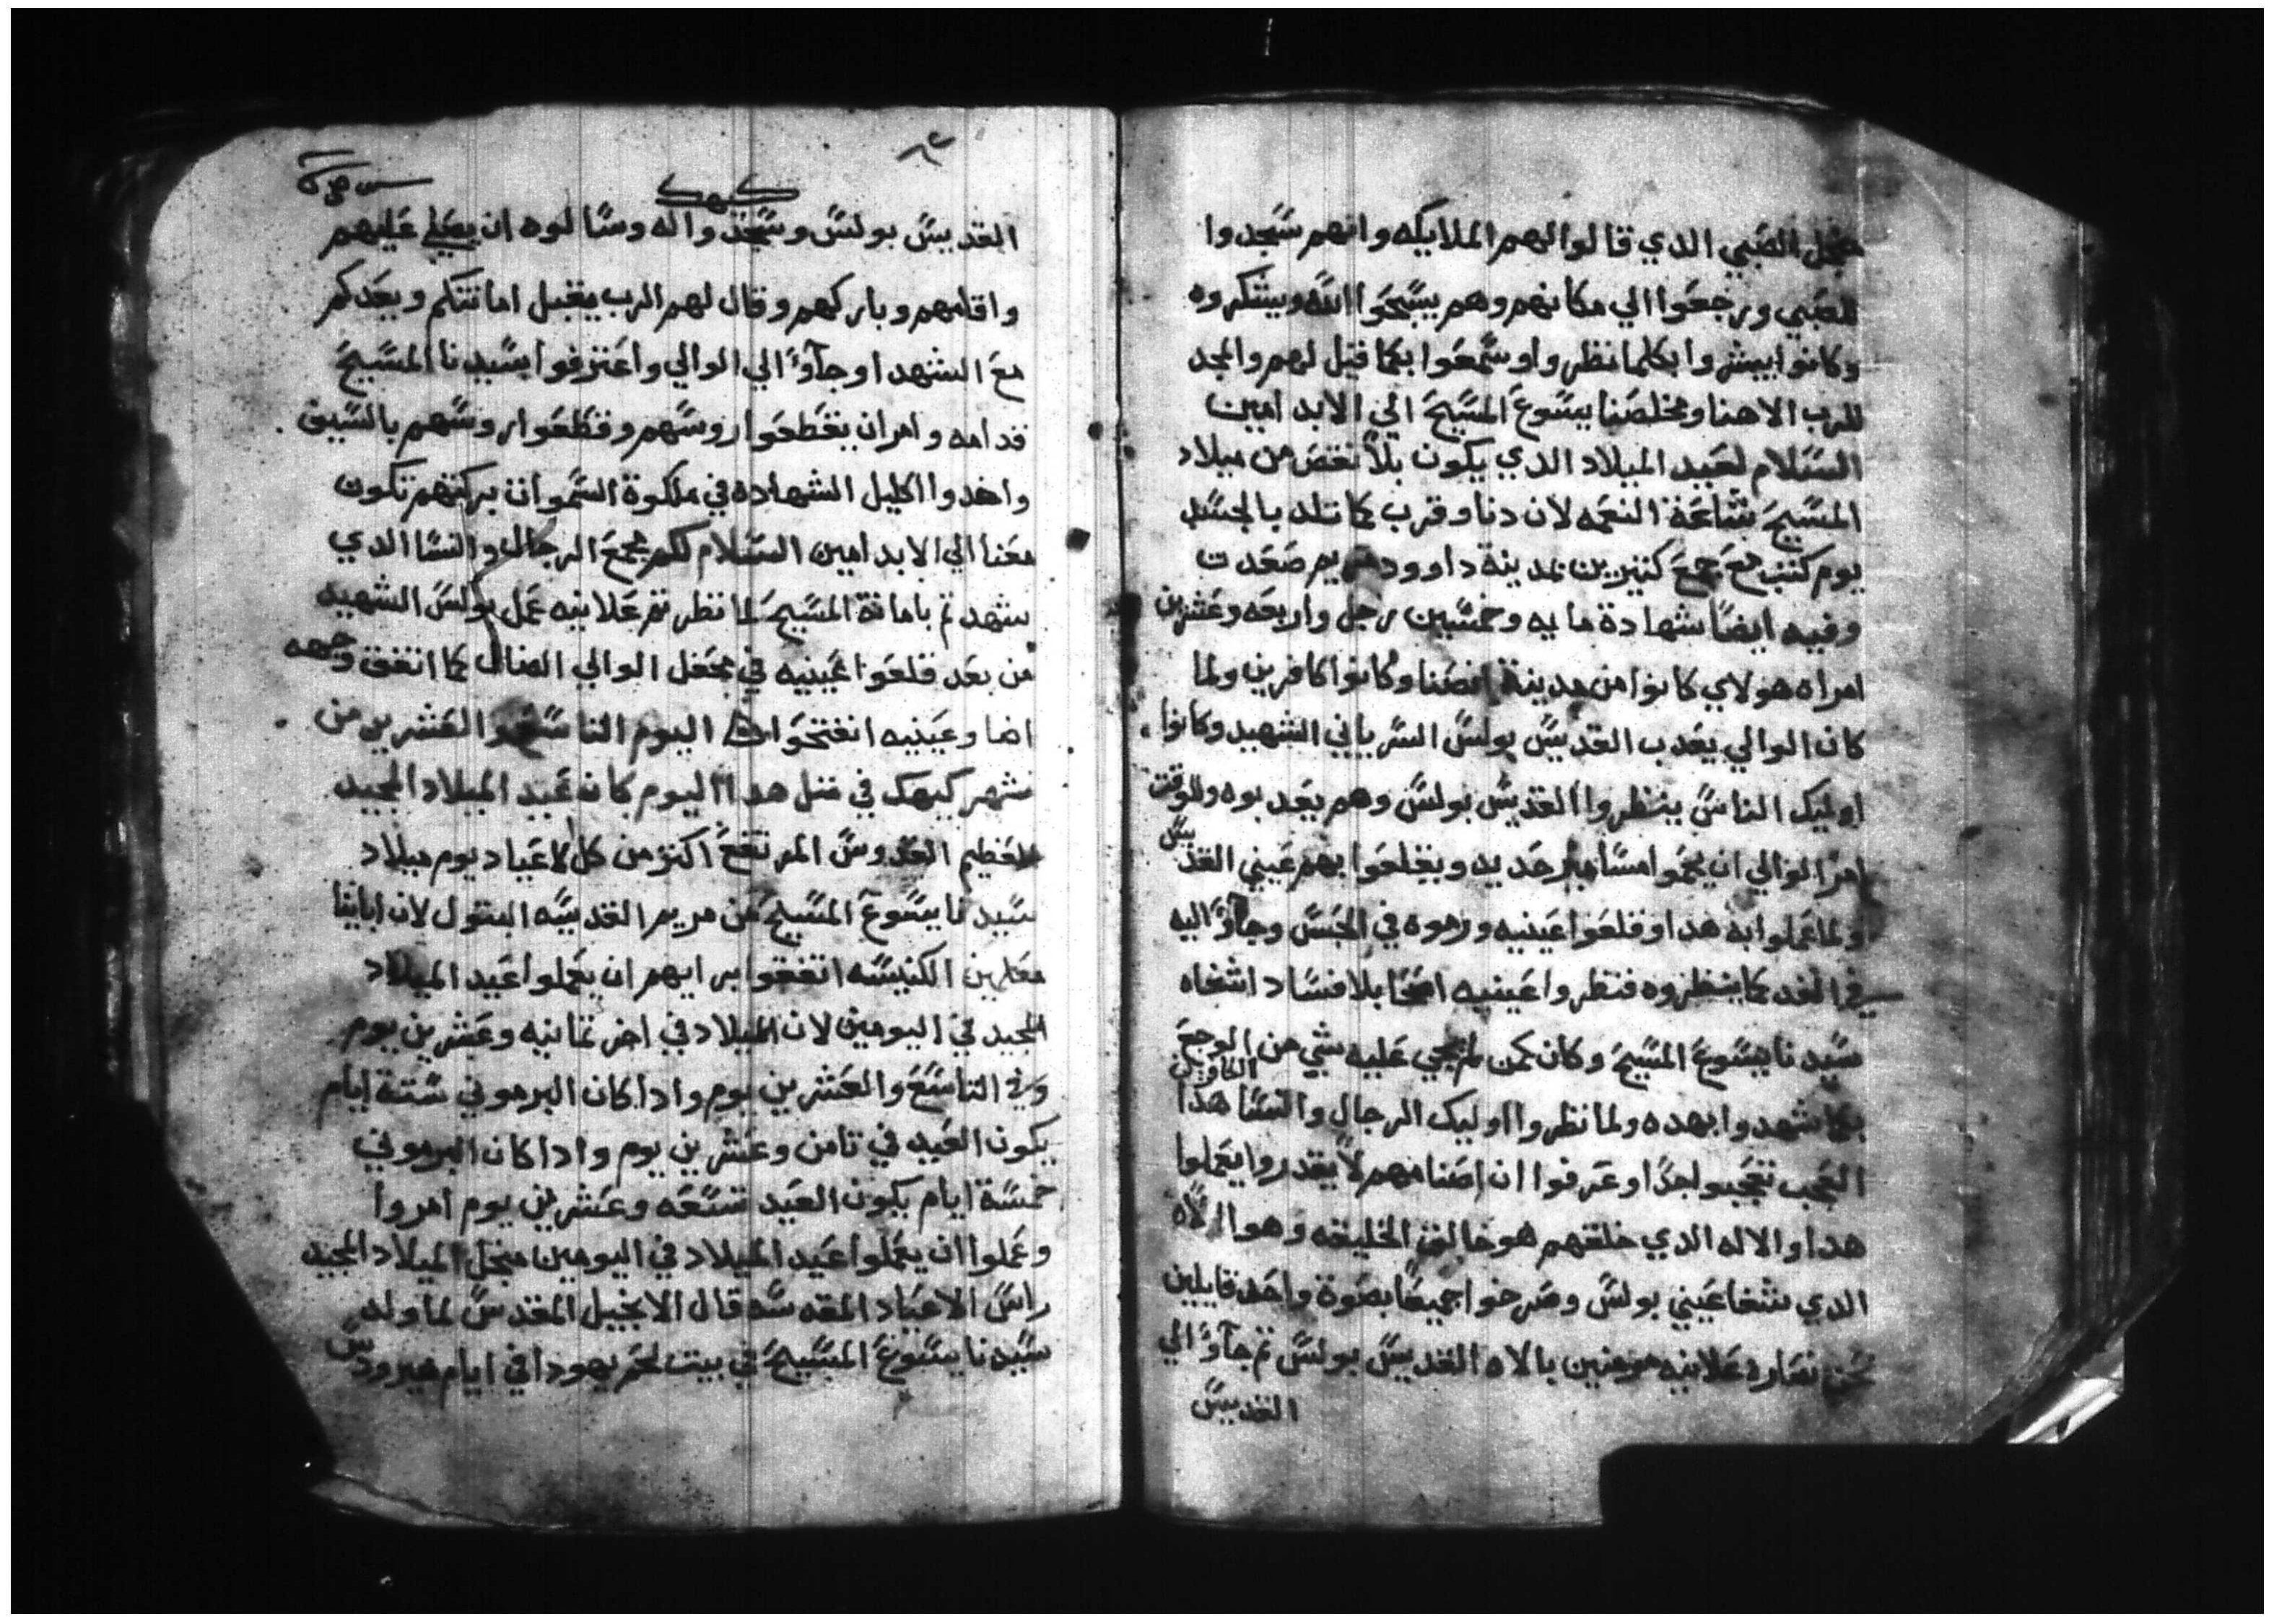 منجل الصبي الدي قالوا لهم الملايكه وانهم سجدوا
للصبي ورجعوا الي مكانهم وهم يسبحوا الله ويشكروه
وكانوا يبشروا بكلما نظروا وسمعوا بكما قيل لهم والمجد
للرب الاهنا ومخلصنا يسوع المسيح الي الابد امين
السلام لعيد الميلاد الدي يكون بلا نقص من ميلاد
المسيح النعمه لان دنا وقرب كما تلد بالجسد
يوم كتب مع جمع كتيرين بمدينة داوود مريم صعدت
وفيه ايضا شهادة مايه وخمسين رجل واربعه وعشرين
امراه هولاي كانوا من مدينة انصنا وكانوا كافرين ولما
كان الوالي يعدب القديس بولس السرياني الشهيد وكانوا
اوليك الناس ينظروا القديس بولس وهم يعدبوه وللوقت
امر الوالي ان يحموا مسامير حديد ويقلعوا بهم عيني القديس
ولما عملوا به هدا وقلعوا عينيه ورموه في الحبس وجاوا اليه
في الغد كما ينظروه فنظروا عينيه اصحا بلا فساد اشفاه
سيدنا يسوع المسيح وكان كمن لم يجي عليه شي من الوجع
بكما شهدوا بهده ولما نظروا اوليك الرجال والنسا الكافرين هدا
العجب تعجبوا جدا وعرفوا ان اصنامهم لا يقدروا يعملوا
هدا والاله الدي خلقهم هو خالق الخليقه وهو الالاه
الدي شفا عيني بولس وصرخوا جميعا بصوة واحد قايلين
نحن نصاره علانيه مومنين بالاه القديس بولس تم جاوا الي
القديس
كيهك
القديس بولس وسجدوا له وسالوه ان يصلي عليهم
واقامهم وباركهم وقال لهم الرب يقبل امانتكم ويعدكم
مع الشهدا وجاوا الي الوالي واعترفوا بسيدنا المسيح
قدامه وامر ان يقطعوا روسهم وقطعوا روسهم بالسيف
واخدوا اكليل الشهاده في ملكوة السموات بركتهم تكون
معنا الي الابد امين السلام لكم مجمع الرجال والنسا الدي
شهدتم بامانة المسيح لما نظرتم علانيه عمل بولس الشهيد
من بعد قلعوا عينيه في محفل الوالي الضال كما اتفق وجهه
اضا وعينيه انفتحوا اليوم التاسع والعشرين من
شهر كيهك في متل هدا اليوم كان عيد الميلاد المجيد
العظيم القدوس المرتفع اكتر من كل الاعياد يوم ميلاد
سيدنا يسوع المسيح من مريم القديسه البتول لان ابايتا
معلمين الكنيسه اتفقوا برايهم ان يعملوا عيد الميلاد
المجيد في اليومين لان الميلاد في اخر تمانيه وعشرين يوم
وفي التاسع والعشرين يوم وادا كان البرموني ستة ايام
يكون العيد في تامن وعشرين يوم وادا كان البرموني
خمسة ايام يكون العيد تسعه وعشرين يوم امروا
وعملوا ان يعملوا عيد الميلاد في اليومين منجل الميلاد المجيد
راس الاعياد المقدسه قال الانجيل المقدس لما ولد
سيدنا يسوع المسيح في بيت لحم يهودا في ايام هيرودس